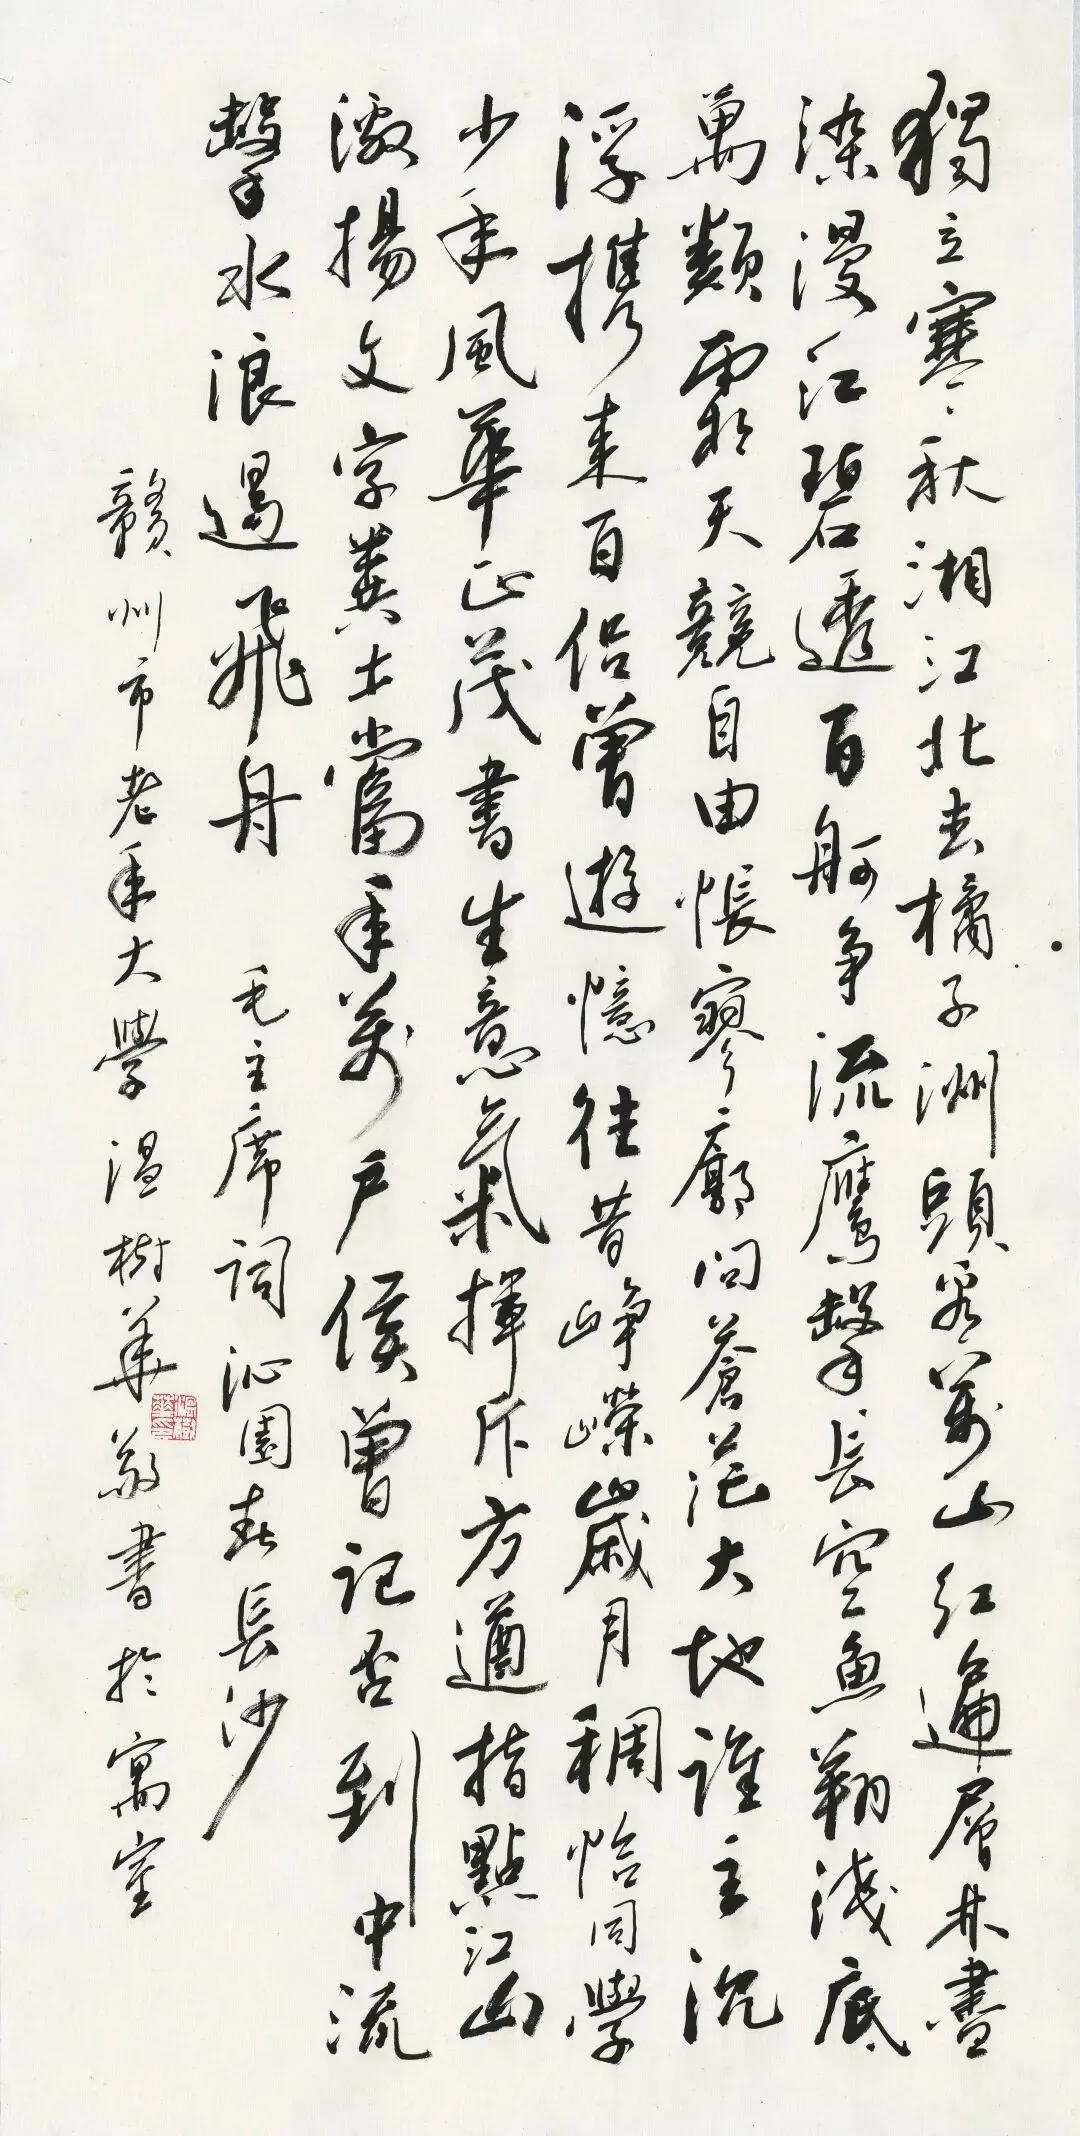 獨立寒秋湘江北去橘子洲頭看萬山紅遍層林盡
染漫江碧透百舸争流鷹擊長空魚翔淺底
萬類霜天競自由悵寥廓問蒼茫大地誰主沉
浮携来百侣曾遊憶往昔崢嶸歲月稠恰同學
少年風華正茂書生意氣揮斥方遒指點江山
激揚文字糞土當年萬户侯曾記否到中流
擊水浪遏飛舟 毛主席詞沁園春長沙
贛州市老年大學温樹華敬書於寓室